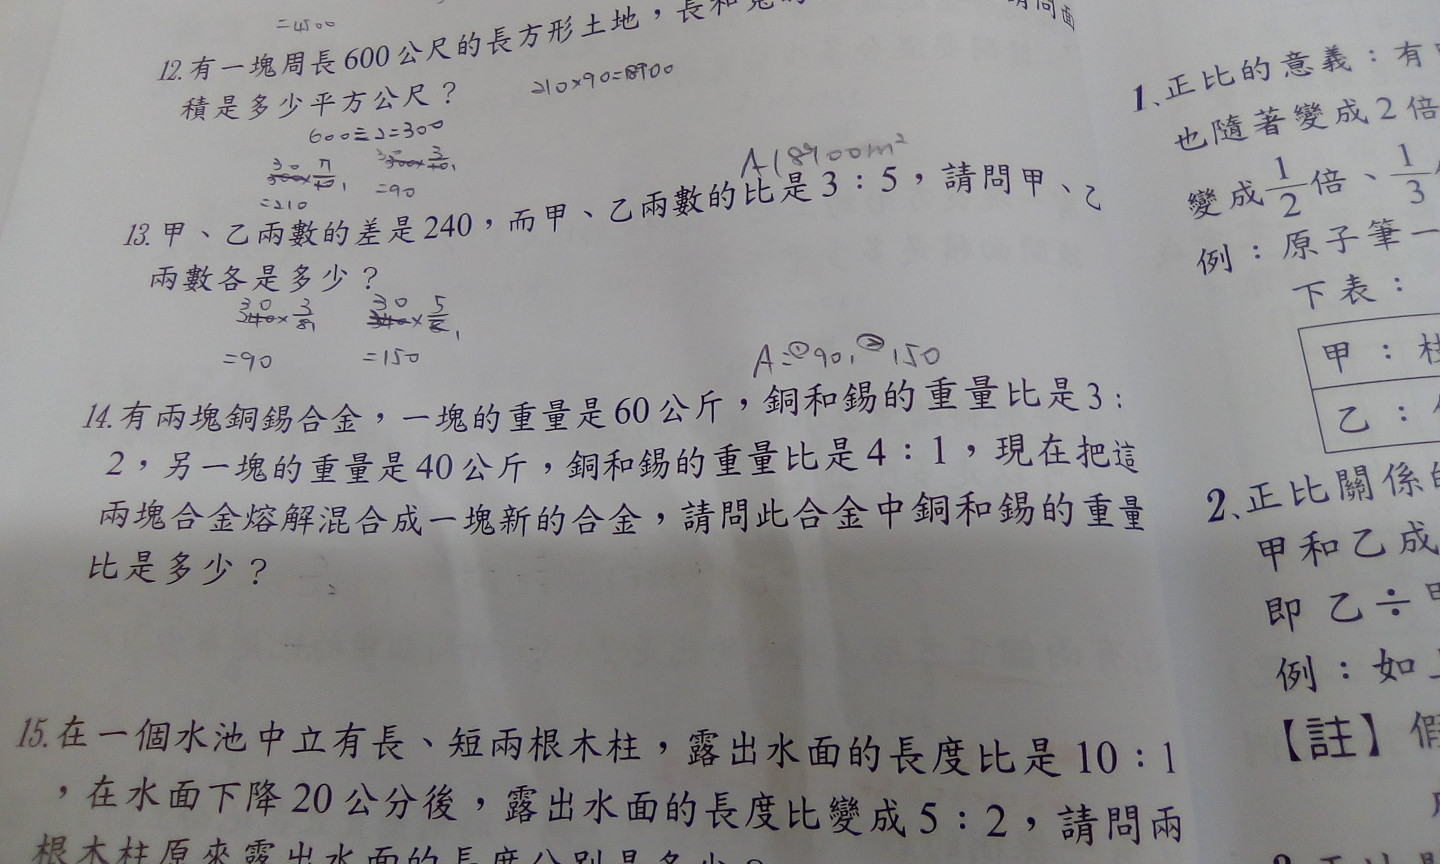 =4500
12.有一塊周長600公尺的長方形土地，長和寬的
請問面
積是多少平方公尺？
210×90=18900
600÷2=300
=210
=90
A18900m²
13.甲、乙兩數的差是240，而甲、乙兩數的比是3：5，請問甲、乙
兩數各是多少？
30 3
240×8 1
30 5
240×8 1
=90
=150
A:①90,②150
14.有兩塊銅錫合金，一塊的重量是60公斤，銅和錫的重量比是3：
2，另一塊的重量是40公斤，銅和錫的重量比是4：1，現在把這
兩塊合金熔解混合成一塊新的合金，請問此合金中銅和錫的重量
比是多少？
15.在一個水池中立有長、短兩根木柱，露出水面的長度比是10：1
，在水面下降20公分後，露出水面的長度比變成5：2，請問兩
根木柱原來露出水面的長度分別是多少？
1、正比的意義：有
也隨著變成2倍
變成1/2倍、1/3
例：原子筆一
下表：
甲：
乙：
2、正比關係的
甲和乙成
即 乙÷甲
例：如上
【註】假